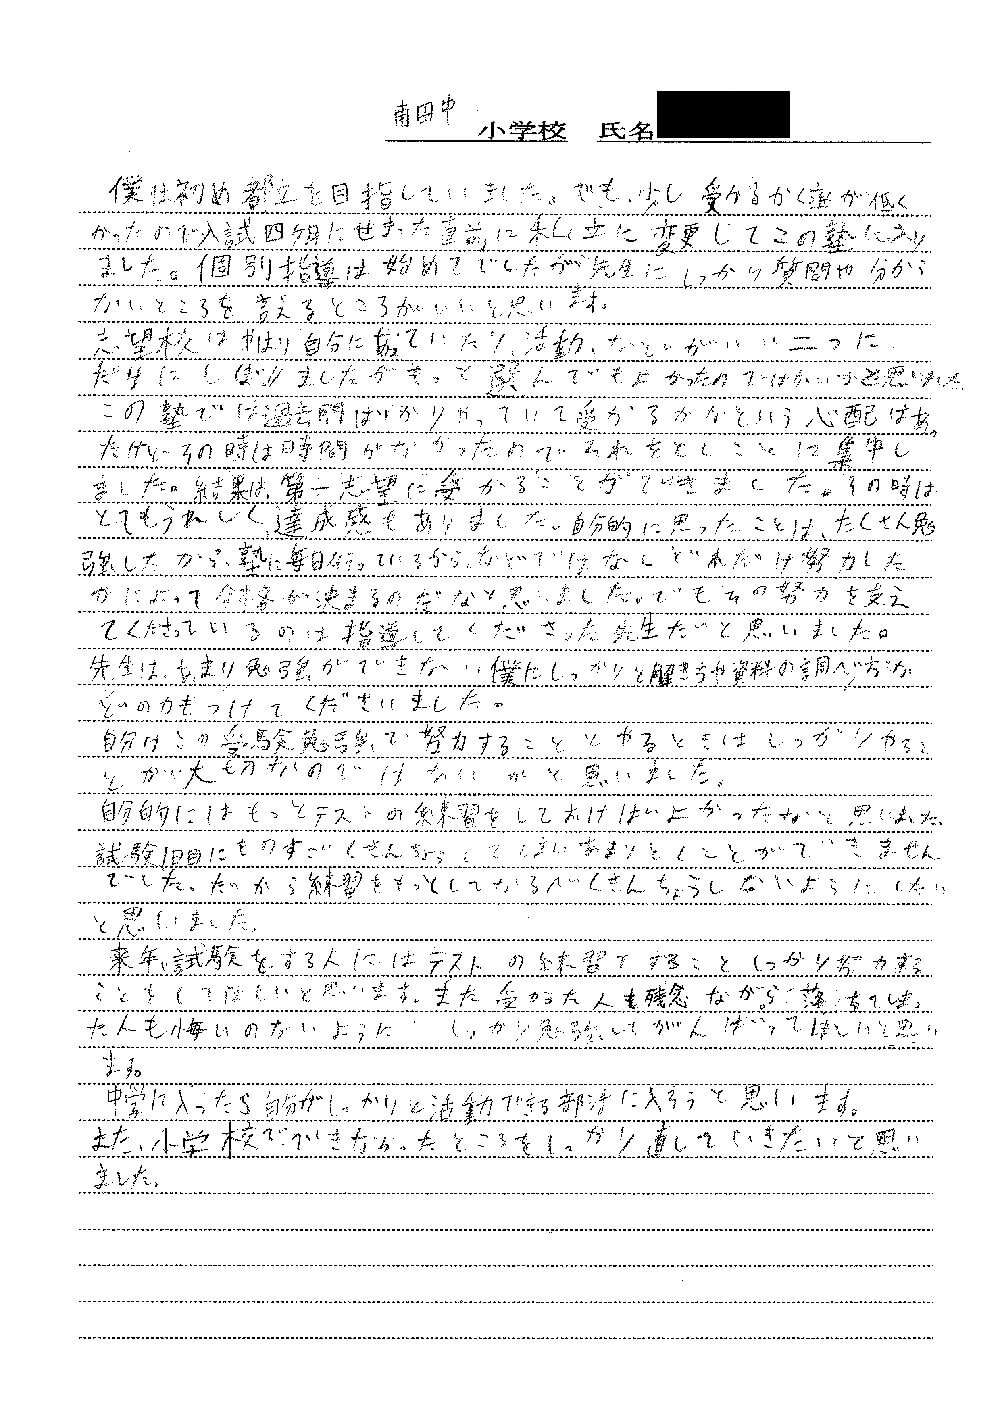 南田中 小学校 氏名
僕は初め都立を目指していました。でも、少し受かるかく率が低く
かったので入試四ヶ月にせまった直前に私立に変更してこの塾に入り
ました。個別指導は始めてでしたが先生にしっかり質問や分から
ないところを言えるところがいいと思います。
志望校はやはり自分にあっていたり、活動、などがいい二つに
だけにしぼりましたがもっと選んでもよかったのではないかと思いました
この塾では過去問ばかりやっていて受かるかなという心配はあっ
たけど、その時は時間がなかったので、それをとくことに集中し
ました。結果は、第一志望に受かることができました。その時は
とてもうれしく、達成感もありました。自分的に思ったことは、たくさん勉
強したから、塾に毎日行っているから、などではなくどれだけ努力した
かによって合否が決まるのだなと思いました。でもその努力を支え
てくださっているのは指導してくださった先生だと思いました。
先生は、あまり勉強ができない僕にしっかりと解き方や資料の調べ方な
どの力もつけてくださいました。
自分はこの受験勉強で努力することとやるときはしっかりやるこ
とが大切なのではないかと思いました。
自分的にはもっとテストの練習をしておけばよかったなと思いました
試験1日目にものすごくきんちょうしてしまいあまりとくことができません
でした。だから練習をもっとしてなるべくきんちょうしないようにしたい
と思いました。
来年、試験をする人にはテストの練習をすることしっかり努力する
ことをしてほしいと思います。また受かった人も残念ながら落ちてしまっ
た人も悔いのないようにしっかり勉強してがんばってほしいと思い
ます。
中学に入ったら自分がしっかりと活動できる部活に入ろうと思います。
また、小学校でできなかったところをしっかり直していきたいと思い
ました。